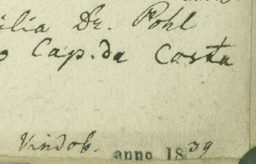 ilia Dr. Pohl
Cap. da Costa
Vindob. anno 1839